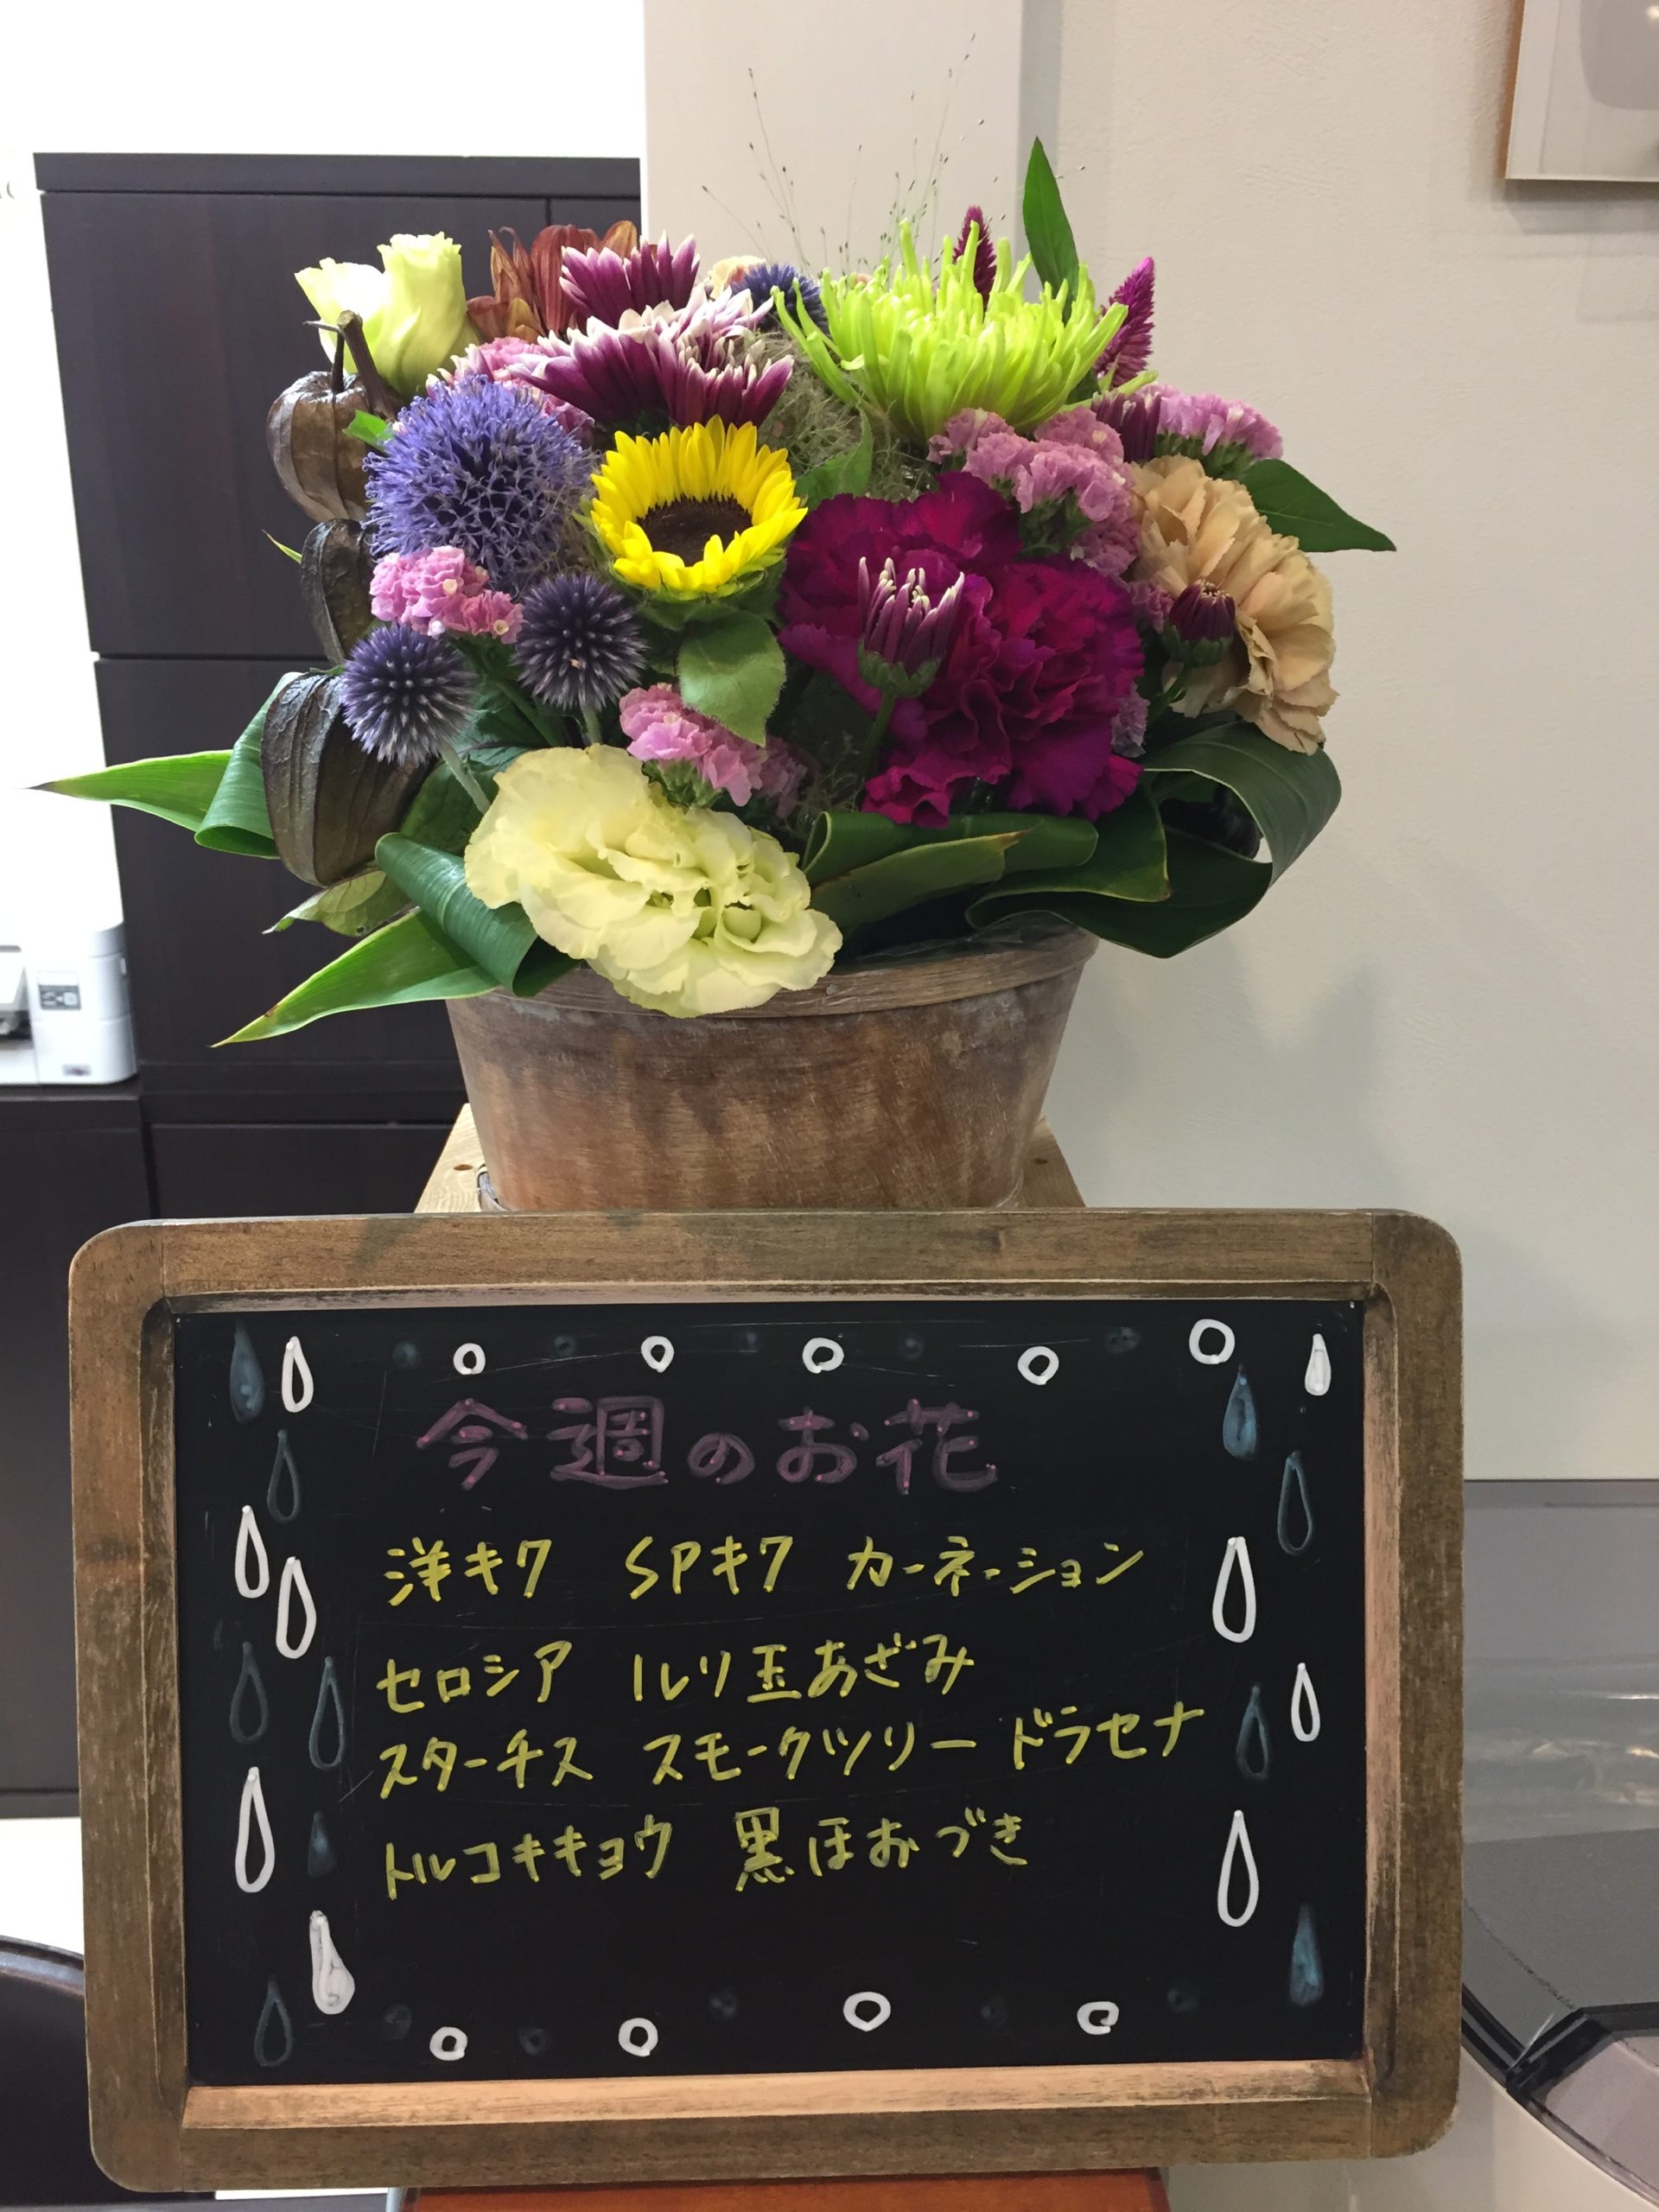 今週のお花
洋キク SPキク カーネーション
セロシア ルリ玉あざみ
スターチス スモークツリー ドラセナ
トルコキキョウ 黒ほおづき